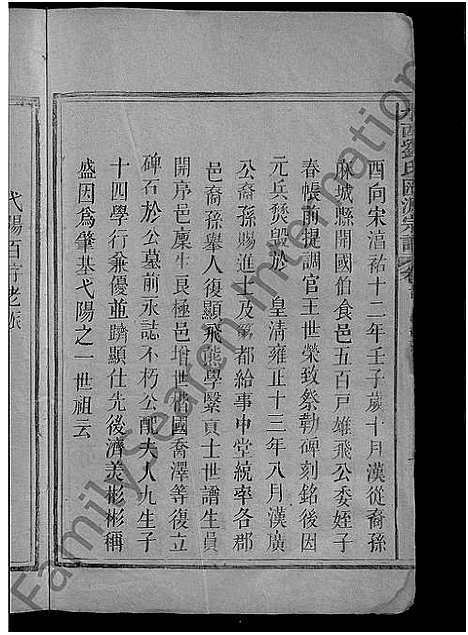 西向宋淳祐十二年壬子歲十月漢從裔孫
麻城縣開國伯食邑五百戶雄飛公委姪子
春帳前提調官王世榮致祭勒碑刻銘後因
元兵燹毀於　皇清雍正十三年八月漢廣
公裔孫賜進士及第都給事中堂統率各郡
邑裔孫舉人復顯飛熊學賢貢士世譜生員
開序邑廩生良極邑增世楷國喬澤等復立
碑石於公墓前永誌不朽公配夫人九生子
十四學行兼優並躋顯仕先後濟美彬彬稱
盛因爲肇基弋陽之一世祖云
FamilySearch International